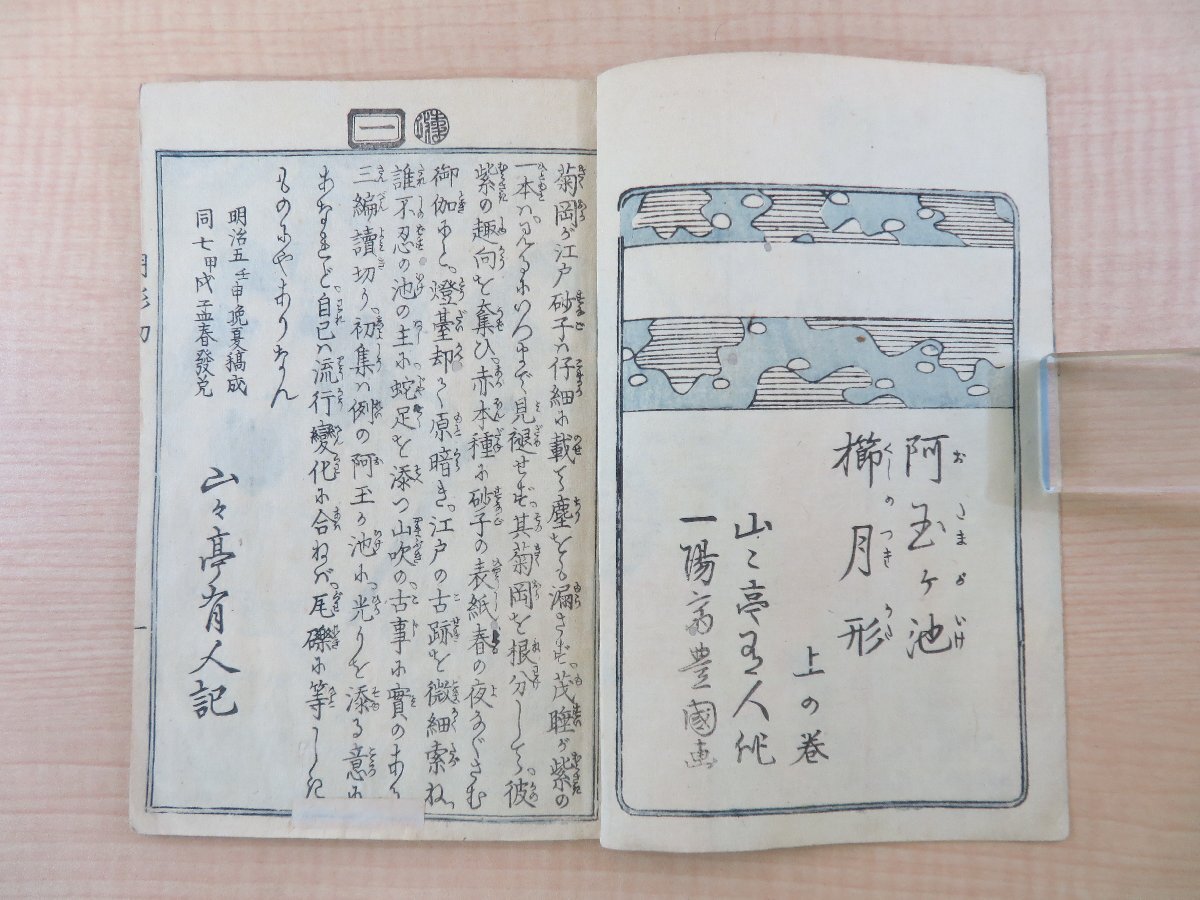 阿玉ヶ池
櫛月形
上の巻
山々亭有人作
一陽斎豊國画
一
菊岡が江戸砂子ハ仔細に載て塵をも漏さず茂睡が紫の
一本ハ見るにいつまで見褪せず其菊岡を根分して彼
紫の趣向を奪ひ赤本種に砂子の表紙春の夜なぐさむ
御伽にと燈臺却て原暗き江戸の古跡を微細索ね
誰不忍の池の主に蛇足を添つ山吹の古事に實のあり
三編讀切り初集ハ例の阿玉が池に光りを添る意に
あなれど自己ハ流行變化に合ねバ尾礫に等しき
ものにやありなん
明治五壬申晩夏稿成
同七甲戌孟春發兌
山々亭有人記